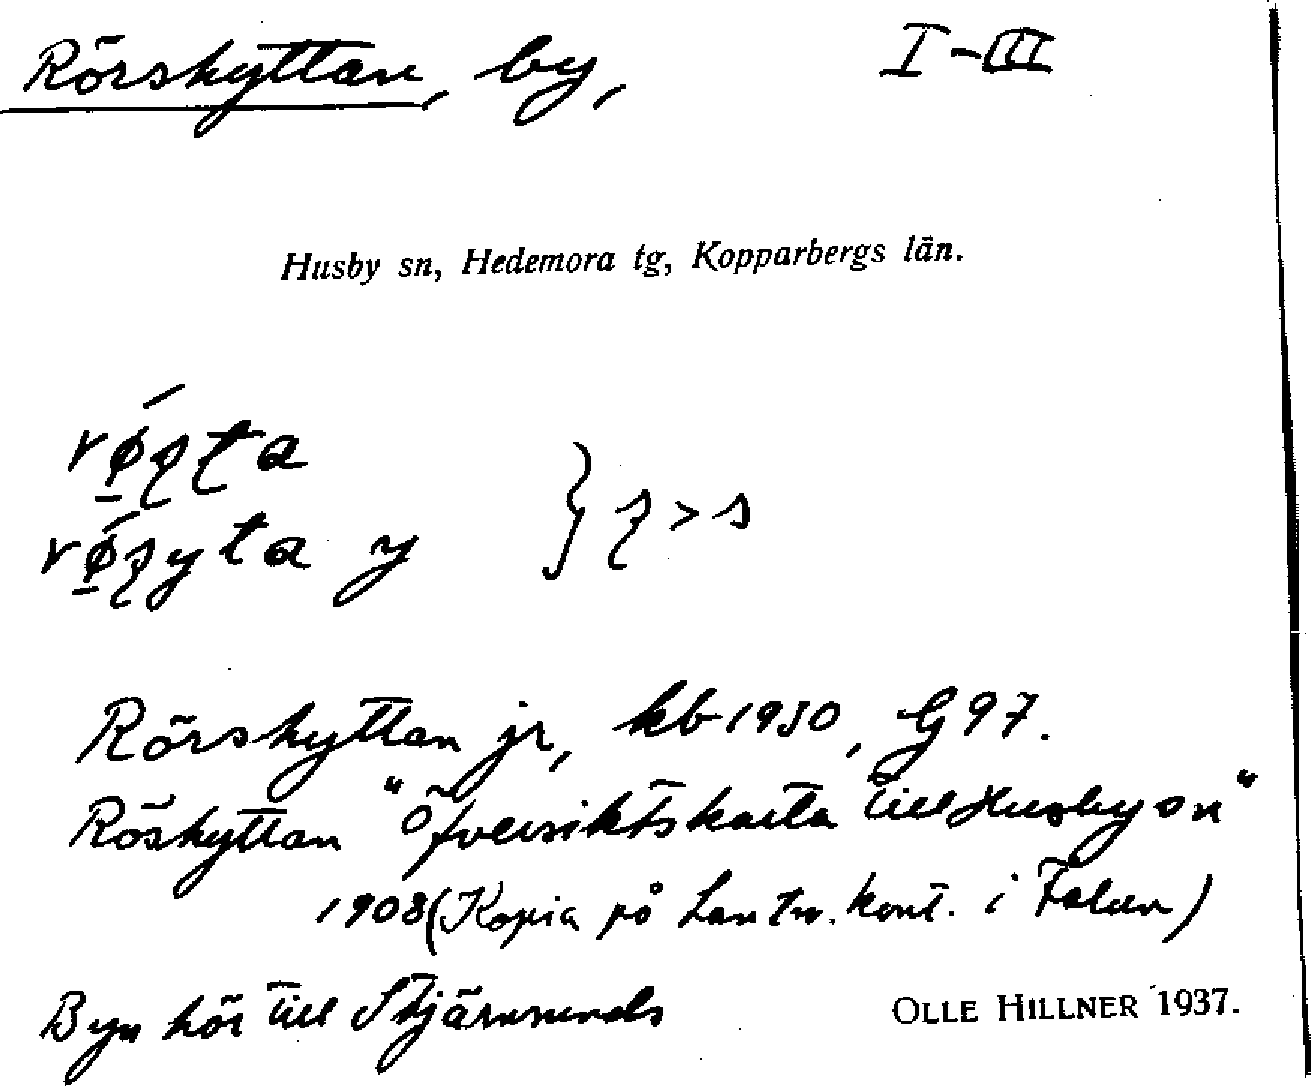 Rörshyttan, by, I-III
Husby sn, Hedemora tg, Kopparbergs län.
Rörshyttan jr, kb 1930, G 97.
Röshyttan "Öfversiktskarta till Husby sn"
1908 (Kopia på Lantm. kont. i Falun)
Byn hör till Stjärnsunds
OLLE HILLNER 1937.